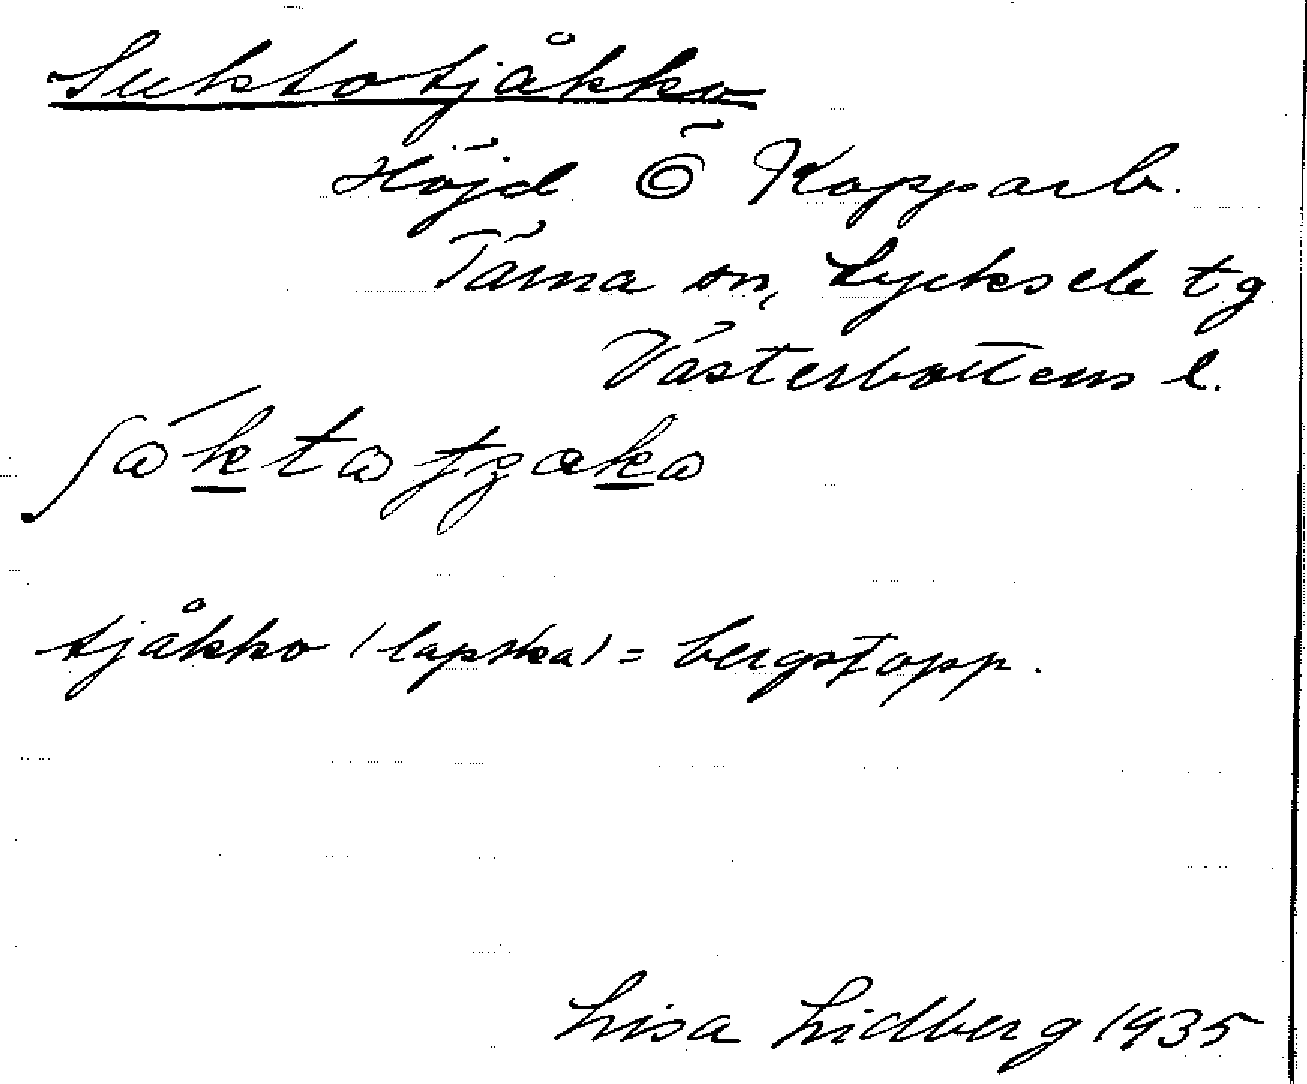 Suktotjåkko
Höjd Ö Kopparb.
Tärna sn, Lycksele tg
Västerbottens l.
tjåkko (lapska) = bergstopp.
Lisa Lidberg 1935